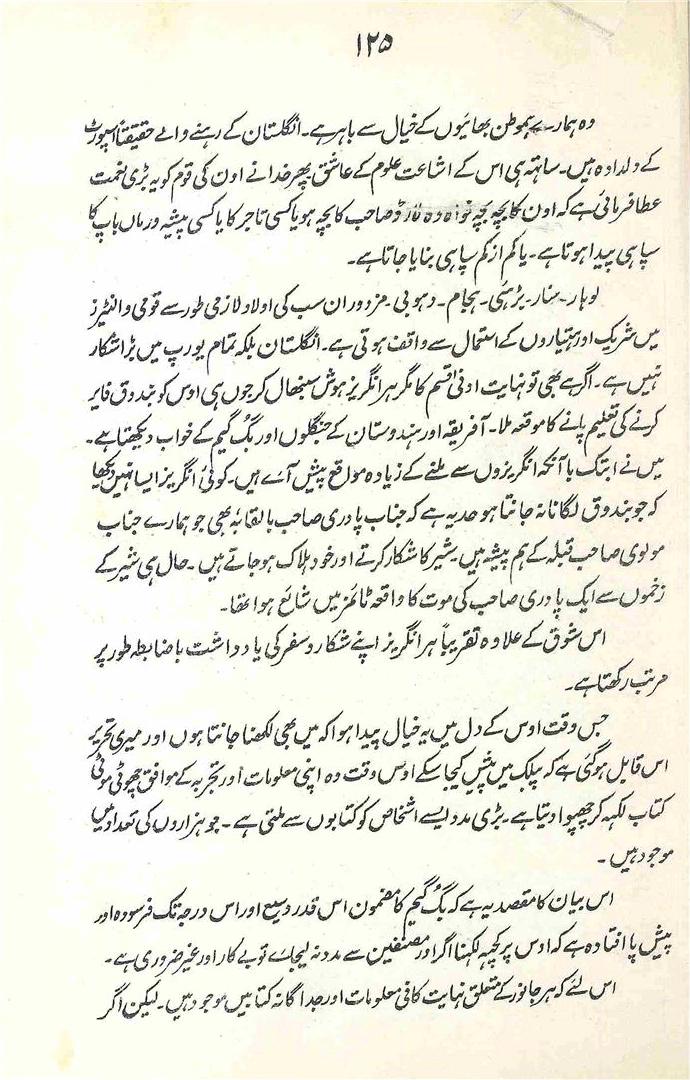 ۱۲۵
وہ ہمارے ہموطن بھائیوں کے خیال سے باہر ہے۔ انگلستان کے رہنے والے حقیقتاً اسپورٹ
کے دلدادہ ہیں۔ ساتھ ہی اس کے اشاعت علوم کے عاشق پھر خدا نے اون کی قوم کو یہ بڑی نعمت
عطا فرمائی ہے کہ اون کا بچہ بچہ خواہ وہ لارڈ صاحب کا بچہ ہو یا کسی تاجر کا یا کسی پیشہ ور ماں باپ کا
سپاہی پیدا ہوتا ہے۔ یا کم از کم سپاہی بنایا جاتا ہے۔
لوہار۔ سنار۔ بڑہئی۔ حجام۔ دہوبی۔ مزدور ان سب کی اولاد لازمی طور سے قومی والنٹیرز
میں شریک اور ہتیاروں کے استعمال سے واقف ہوتی ہے۔ انگلستان بلکہ تمام یورپ میں بڑا شکار
نہیں ہے۔ اگر ہے بھی تو نہایت ادنیٰ قسم کا مگر ہر انگریز ہوش سنبھال کر جوں ہی اوس کو بندوق فایر
کرنے کی تعلیم پانے کا موقعہ ملا۔ آفریقہ اور ہندوستان کے جنگلوں اور بگ گیم کے خواب دیکھتا ہے۔
میں نے ابتک با آنکہ انگریزوں سے ملنے کے زیادہ مواقع پیش آے ہیں۔ کوئی انگریز ایسا نہیں دیکھا
کہ جو بندوق لگانا نہ جانتا ہو حد یہ ہے کہ جناب پادری صاحب بالقابہ بھی جو ہمارے جناب
مولوی صاحب قبلہ کے ہم پیشہ ہیں۔ شیر کا شکار کرتے اور خود ہلاک ہو جاتے ہیں۔ حال ہی شیر کے
زخموں سے ایک پادری صاحب کی موت کا واقعہ ٹائمز میں شائع ہوا تھا۔
اس شوق کے علاوہ تقریباً ہر انگریز اپنے شکار و سفر کی یادداشت باضابطہ طور پر
مرتب رکھتا ہے۔
جس وقت اوس کے دل میں یہ خیال پیدا ہوا کہ میں بھی لکھنا جانتا ہوں اور میری تحریر
اس قابل ہو گئی ہے کہ پبلک میں پیش کیجا سکے اوس وقت وہ اپنی معلومات اور تجربہ کے موافق چھوٹی موٹی
کتاب لکہہ کر چھپوا دیتا ہے۔ بڑی مدد ایسے اشخاص کو کتابوں سے ملتی ہے۔ جو ہزاروں کی تعداد میں
موجود ہیں۔
اس بیان کا مقصد یہ ہے کہ بگ گیم کا مضمون اس قدر وسیع اور اس درجہ تک فرسودہ اور
پیش پا افتادہ ہے کہ اوس پر کچہہ لکہنا اگر اور مصنفین سے مدد نہ لیجاے تو بے کار اور غیر ضروری ہے۔
اس لئے کہ ہر جانور کے متعلق نہایت کافی معلومات اور جداگانہ کتابیں موجود ہیں۔ لیکن اگر